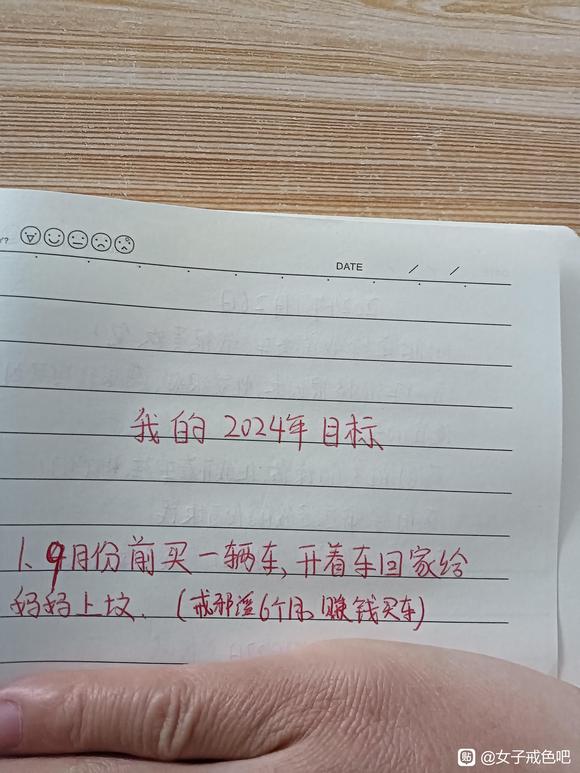 DATE / /
我的2024年目标
1、9月份前买一辆车,开着车回家给
妈妈上坟.(戒邪淫6个月,赚钱买车)
贴 @女子戒色吧